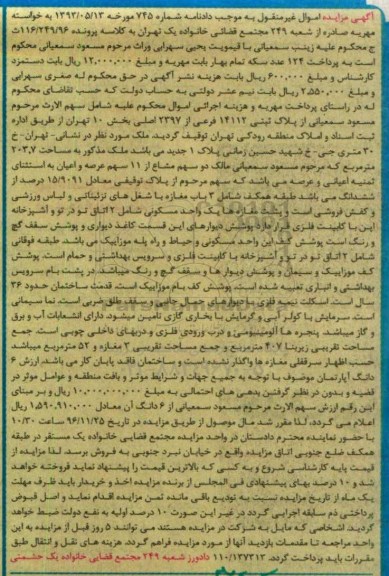 آگهی مزایده اموال غیرمنقول به موجب دادنامه شماره ۷۴۵ مورخه ۱۳۹۲/۰۵/۱۳ به خواسته
مهریه صادره از شعبه ۲۴۹ مجتمع قضائی خانواده یک تهران به کلاسه پرونده ۱۱۶/۲۴۹/۹۶ث
ج محکوم علیه زینب سمعیانی با قیمومت یحیی سهرابی وراث مرحوم مسعود سمعیانی محکوم
است به پرداخت ۱۲۴ عدد سکه تمام بهار بابت مهریه و مبلغ ۱۲,۰۰۰,۰۰۰ ریال بابت دستمزد
کارشناس و مبلغ ۶۰۰,۰۰۰ ریال بابت هزینه نشر آگهی در حق محکوم له صغری سهرابی
و مبلغ ۲,۵۵۰,۰۰۰ ریال بابت نیم عشر دولتی به حساب دولت که حسب تقاضای محکوم
له در راستای پرداخت مهریه و هزینه اجرائی اموال محکوم علیه شامل سهم الارث مرحوم
مسعود سمعیانی از پلاک ثبتی ۱۴۱۱۲ فرعی از ۲۳۹۷ اصلی بخش ۱۰ تهران از طریق اداره
ثبت اسناد و املاک منطقه رودکی تهران توقیف گردید. ملک مورد نظر در نشانی- تهران- خ
۳۰ متری جی- خ شهید حسین زمانی پلاک ۱ جدید می باشد ملک مذکور به مساحت ۲۰۳,۷
مترمربع که مرحوم مسعود سمعیانی مالک دو سهم مشاع از ۱۱ سهم عرصه و اعیان به استثنای
ثمنیه اعیانی و عرصه می باشد که سهم مرحوم از پلاک توقیفی معادل ۱۵/۹۰۹۱ درصد از
ششدانگ می باشد طبقه همکف شامل ۳ باب مغازه با شغل های تزئیناتی و لباس ورزشی
و کفش فروشی است پشت مغازه ها یک واحد مسکونی شامل ۲ اتاق تو در تو و آشپزخانه
این با کابینت فلزی قرار دارد پوشش دیوارهای این قسمت کاغذ دیواری و پوشش سقف گچ
و رنگ است پوشش کف این واحد مسکونی وحیاط و راه پله موزاییک می باشد. طبقه فوقانی
شامل ۲ اتاق تو در تو و آشپزخانه با کابینت فلزی و سرویس بهداشتی و حمام است. پوشش
کف موزاییک و سیمان و پوشش دیوار ها و سقف گچ و رنگ میباشد. در پشت بام سرویس
بهداشتی و انباری تعبیه شده است. پوشش کف بام موزاییک است. قدمت ساختمان حدود ۳۶
سال است. اسکلت نیمه فلزی با دیوارهای حمال جانبی و سقف طاق ضربی است. نما سیمانی
است. سرمایش با کولر آبی و گرمایش با بخاری گازی تامین میشود. دارای انشعابات آب و برق
و گاز میباشد. پنجره ها آلومینیومی و درب ورودی فلزی و دربهای داخلی چوبی است. جمع
مساحت تقریبی زیربنا ۴۰۷ مترمربع و جمع مساحت تقریبی ۳ مغازه و ۵۲ مترمربع میباشد
حسب اظهار سرقفلی مغازه ها واگذار نشده است و ساختمان فاقد پایان کار می باشد. ارزش ۶
دانگ آپارتمان موصوف با توجه به جمیع جهات و شرایط موثر و بافت منطقه و عوامل موثر در
قضیه و بدون در نظر گرفتن بدهی های احتمالی به مبلغ ۱۰,۰۰۰,۰۰۰,۰۰۰ ریال و بر مبنای
این رقم ارزش سهم الارث مرحوم مسعود سمعیانی از ۶ دانگ آن معادل ۱,۵۹۰,۹۱۰,۰۰۰ ریال
اعلام می گردد، لذا مقرر شد مال موصول از طریق مزایده در تاریخ ۹۶/۱۱/۲۵ ساعت ۱۰/۳۰
با حضور نماینده محترم دادستان در واحد مزایده مجتمع قضایی خانواده یک مستقر در طبقه
همکف ضلع جنوبی اتاق مزایده واقع در خیابان نبرد جنوبی به فروش برسد. لذا مزایده از
قیمت پایه کارشناسی شروع و به کسی که بالاترین قیمت را پیشنهاد نماید فروخته خواهد
شد و ۱۰ درصد بهای پیشنهادی فی المجلس از برنده مزایده اخذ و خریدار باید ظرف مهلت
یک ماه از تاریخ مزایده نسبت به تودیع باقی مانده ثمن مزایده اقدام نماید و اصل فیوض
پرداختی ذم سابقه اجرایی گردد در غیر این صورت ۱۰ درصد اولیه به نفع دولت ضبط خواهد
گردید اشخاصی که مایل به شرکت در مزایده هستند می توانند ۵ روز قبل از مزایده به این
واحد مراجعه تا مقدمات بازدید آنها از مورد مزایده فراهم گردد. هزینه های نقل و انتقال طبق
مقررات باید پرداخت گردد. ۱۱۰/۱۳۷۳۱۳ دادورز شعبه ۲۴۹ مجتمع قضایی خانواده یک حشمتی